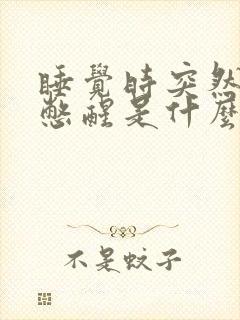 睡覺時突然
憋醒是什麼
不是蚊子